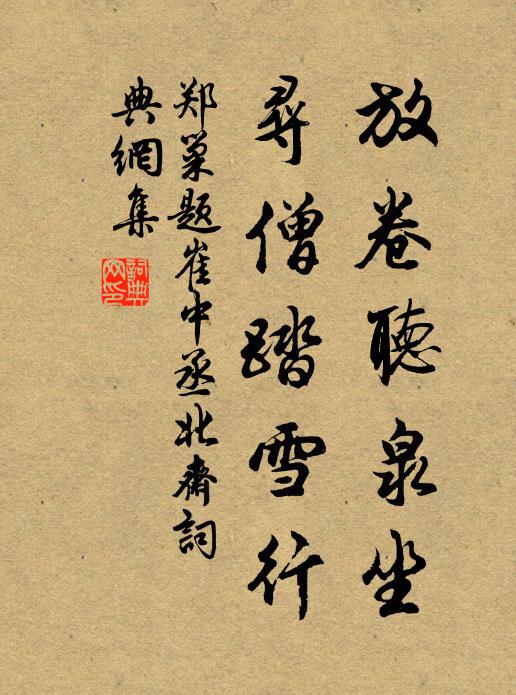 放卷聽泉坐
尋僧踏雪行
郑巢题崔中丞北齋詞
典網集
詞典
网印